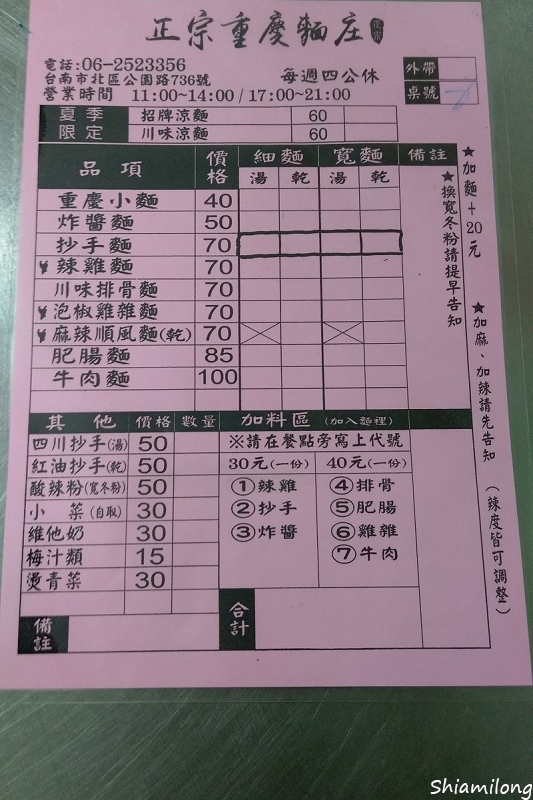 正宗重慶麵庄
電話:06-2523356
台南市北區公園路736號
每週四公休
營業時間 11:00~14:00 / 17:00~21:00
外帶
桌號
夏季限定
招牌涼麵 60
川味涼麵 60
品項 價格 細麵 寬麵 備註
湯 乾 湯 乾
重慶小麵 40
炸醬麵 50
抄手麵 70
辣雞麵 70
川味排骨麵 70
泡椒雞雜麵 70
麻辣順風麵(乾) 70
肥腸麵 85
牛肉麵 100
★換寬冬粉請提早告知
★加麵+20元
★加麻、加辣請先告知
(辣度皆可調整)
其他 價格 數量
四川抄手(湯) 50
紅油抄手(乾) 50
酸辣粉(寬冬粉) 50
小菜(自取) 30
維他奶 30
梅汁類 15
燙青菜 30
備註
加料區 (加入麵裡)
※請在餐點旁寫上代號
30元(一份) 40元(一份)
①辣雞 ④排骨
②抄手 ⑤肥腸
③炸醬 ⑥雞雜
⑦牛肉
合計
Shiamilong